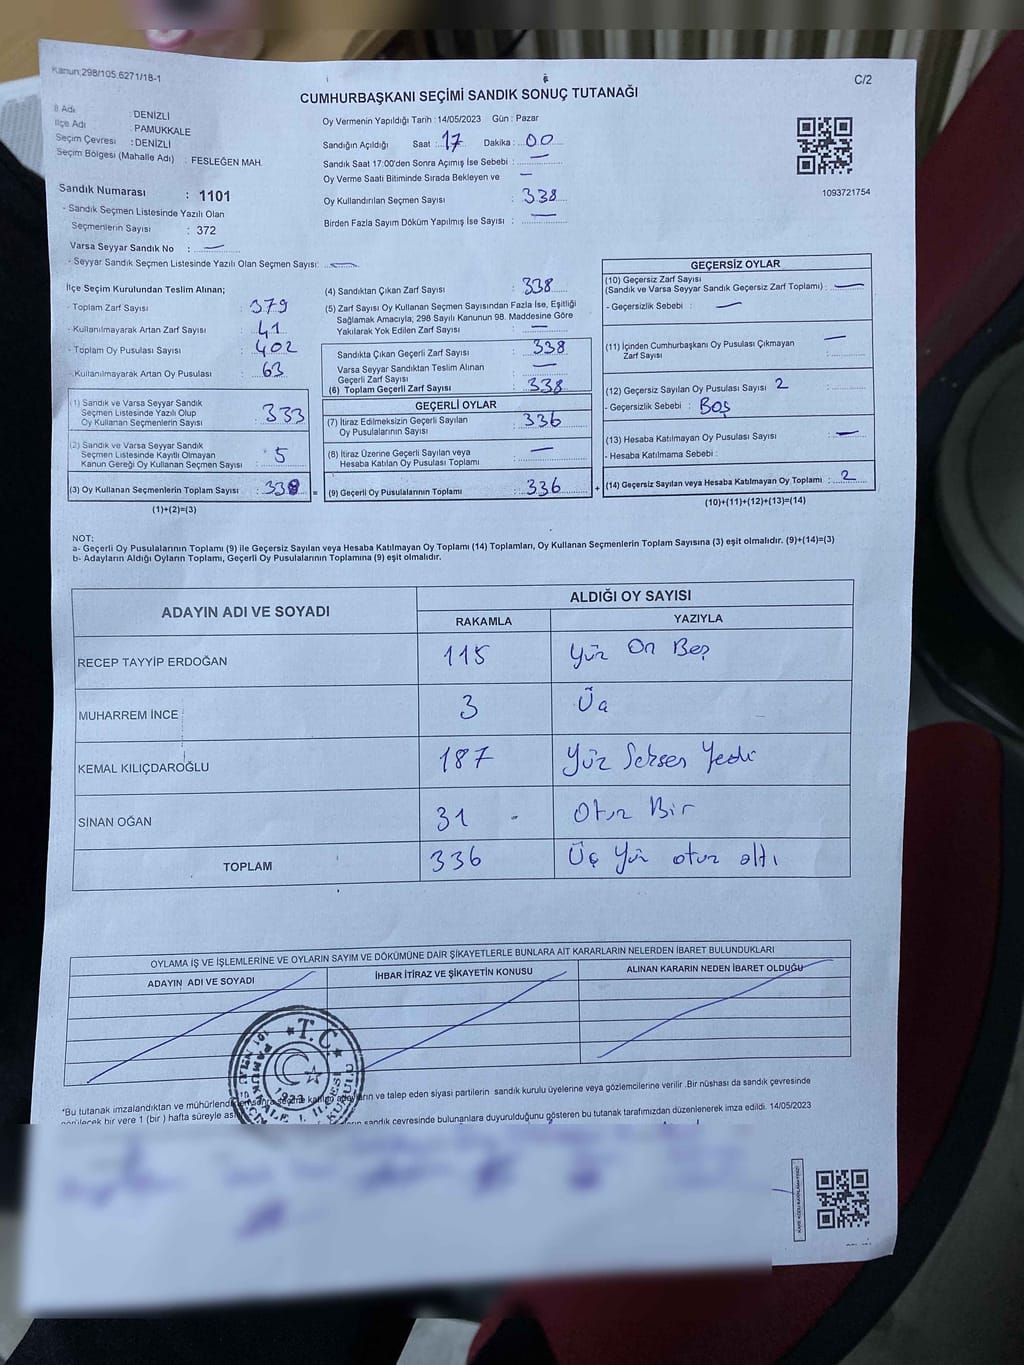 Kanun:298/105.6271/18-1
C/2
CUMHURBAŞKANI SEÇİMİ SANDIK SONUÇ TUTANAĞI
İl Adı : DENİZLİ
İlçe Adı : PAMUKKALE
Seçim Çevresi : DENİZLİ
Seçim Bölgesi (Mahalle Adı) : FESLEĞEN MAH.
Sandık Numarası : 1101
- Sandık Seçmen Listesinde Yazılı Olan
Seçmenlerin Sayısı : 372
Varsa Seyyar Sandık No : —
- Seyyar Sandık Seçmen Listesinde Yazılı Olan Seçmen Sayısı: —
Oy Vermenin Yapıldığı Tarih : 14/05/2023 Gün : Pazar
Sandığın Açıldığı Saat : 17 Dakika : 00
Sandık Saat 17:00'den Sonra Açımış İse Sebebi : —
Oy Verme Saati Bitiminde Sırada Bekleyen ve —
Oy Kullandırılan Seçmen Sayısı : 338
Birden Fazla Sayım Döküm Yapılmış İse Sayısı : —
1093721754
İlçe Seçim Kurulundan Teslim Alınan;
- Toplam Zarf Sayısı : 379
- Kullanılmayarak Artan Zarf Sayısı : 41
- Toplam Oy Pusulası Sayısı : 402
- Kullanılmayarak Artan Oy Pusulası : 63
(1) Sandık ve Varsa Seyyar Sandık
Seçmen Listesinde Yazılı Olup
Oy Kullanan Seçmenlerin Sayısı : 333
(2) Sandık ve Varsa Seyyar Sandık
Seçmen Listesinde Kayıtlı Olmayan
Kanun Gereği Oy Kullanan Seçmen Sayısı : 5
(3) Oy Kullanan Seçmenlerin Toplam Sayısı : 338 =
(1)+(2)=(3)
(4) Sandıktan Çıkan Zarf Sayısı : 338
(5) Zarf Sayısı Oy Kullanan Seçmen Sayısından Fazla İse, Eşitliği
Sağlamak Amacıyla; 298 Sayılı Kanunun 98. Maddesine Göre
Yakılarak Yok Edilen Zarf Sayısı : —
Sandıkta Çıkan Geçerli Zarf Sayısı : 338
Varsa Seyyar Sandıktan Teslim Alınan
Geçerli Zarf Sayısı : —
(6) Toplam Geçerli Zarf Sayısı : 338
GEÇERLİ OYLAR
(7) İtiraz Edilmeksizin Geçerli Sayılan
Oy Pusulalarının Sayısı : 336
(8) İtiraz Üzerine Geçerli Sayılan veya
Hesaba Katılan Oy Pusulası Toplamı : —
(9) Geçerli Oy Pusulalarının Toplamı : 336 +
GEÇERSİZ OYLAR
(10) Geçersiz Zarf Sayısı
(Sandık ve Varsa Seyyar Sandık Geçersiz Zarf Toplamı) : —
- Geçersizlik Sebebi : —
(11) İçinden Cumhurbaşkanı Oy Pusulası Çıkmayan —
Zarf Sayısı :
(12) Geçersiz Sayılan Oy Pusulası Sayısı 2 :
- Geçersizlik Sebebi : Boş
(13) Hesaba Katılmayan Oy Pusulası Sayısı : —
- Hesaba Katılmama Sebebi :
(14) Geçersiz Sayılan veya Hesaba Katılmayan Oy Toplamı : 2
(10)+(11)+(12)+(13)=(14)
NOT:
a- Geçerli Oy Pusulalarının Toplamı (9) ile Geçersiz Sayılan veya Hesaba Katılmayan Oy Toplamı (14) Toplamları, Oy Kullanan Seçmenlerin Toplam Sayısına (3) eşit olmalıdır. (9)+(14)=(3)
b- Adayların Aldığı Oyların Toplamı, Geçerli Oy Pusulalarının Toplamına (9) eşit olmalıdır.
ADAYIN ADI VE SOYADI ALDIĞI OY SAYISI
RAKAMLA YAZIYLA
RECEP TAYYİP ERDOĞAN 115 Yüz On Beş
MUHARREM İNCE 3 Üç
KEMAL KILIÇDAROĞLU 187 Yüz Seksen Yedi
SİNAN OĞAN 31 Otuz Bir
TOPLAM 336 Üç Yüz otuz altı
OYLAMA İŞ VE İŞLEMLERİNE VE OYLARIN SAYIM VE DÖKÜMÜNE DAİR ŞİKAYETLERLE BUNLARA AİT KARARLARIN NELERDEN İBARET BULUNDUKLARI
ADAYIN ADI VE SOYADI İHBAR İTİRAZ VE ŞİKAYETİN KONUSU ALINAN KARARIN NEDEN İBARET OLDUĞU
T.C.
PAMUKKALE 1. İLÇESİ
*Bu tutanak imzalandıktan ve mühürlendikten sonra seçime katılan adayların ve talep eden siyasi partilerin sandık kurulu üyelerine veya gözlemcilerine verilir .Bir nüshası da sandık çevresinde
görülecek bir yere 1 (bir ) hafta süreyle ası sandık çevresinde bulunanlara duyurulduğunu gösteren bu tutanak tarafımızdan düzenlenerek imza edildi. 14/05/2023